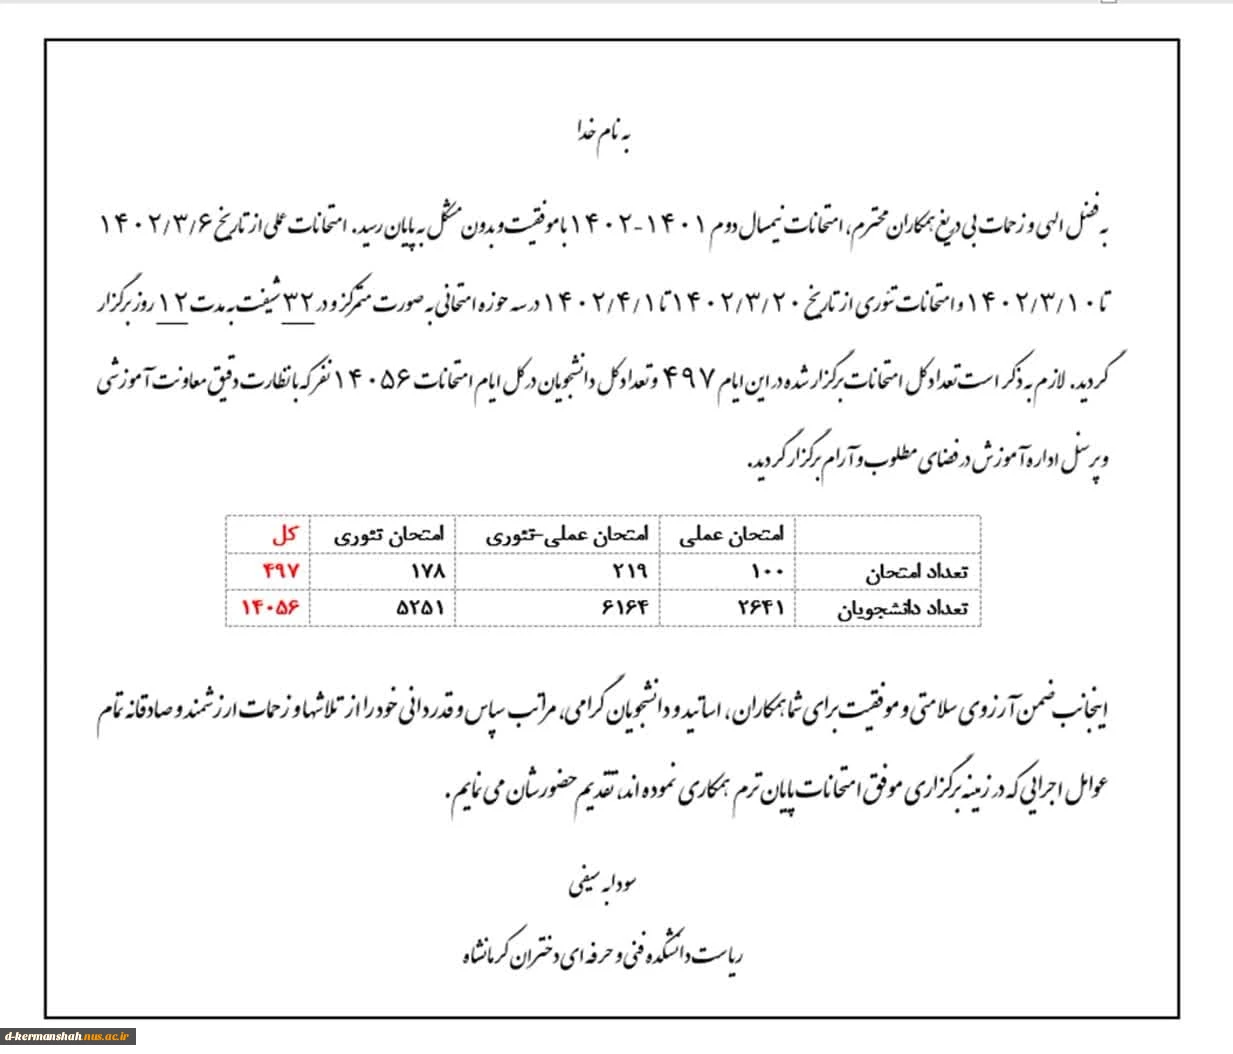 به نام خدا
به فضل الهی و زحمات بی دریغ همکاران محترم، امتحانات نیمسال دوم ۱۴۰۱-۱۴۰۲ با موفقیت و بدون مشکل به پایان رسید. امتحانات عملی از تاریخ ۱۴۰۲/۳/۶
تا ۱۴۰۲/۳/۱۰ و امتحانات تئوری از تاریخ ۱۴۰۲/۳/۲۰ تا ۱۴۰۲/۴/۱ در سه حوزه امتحانی به صورت متمرکز و در ۳۲ شیفت به مدت ۱۲ روز برگزار
گردید. لازم به ذکر است تعداد کل امتحانات برگزار شده در این ایام ۴۹۷ و تعداد کل دانشجویان در کل ایام امتحانات ۱۴۰۵۶ نفر که با نظارت دقیق معاونت آموزشی
و پرسنل اداره آموزش در فضای مطلوب و آرام برگزار گردید.
امتحان عملی امتحان عملی-تئوری امتحان تئوری کل
تعداد امتحان ۱۰۰ ۲۱۹ ۱۷۸ ۴۹۷
تعداد دانشجویان ۲۶۴۱ ۶۱۶۴ ۵۲۵۱ ۱۴۰۵۶
اینجانب ضمن آرزوی سلامتی و موفقیت برای شما همکاران، اساتید و دانشجویان گرامی، مراتب سپاس و قدردانی خود را از تلاشها و زحمات ارزشمند و صادقانه تمام
عوامل اجرایی که در زمینه برگزاری موفق امتحانات پایان ترم همکاری نموده اند، تقدیم حضورشان می نمایم.
سودابه سیفی
ریاست دانشکده فنی و حرفه ای دختران کرمانشاه
d-kermanshah.nus.ac.ir